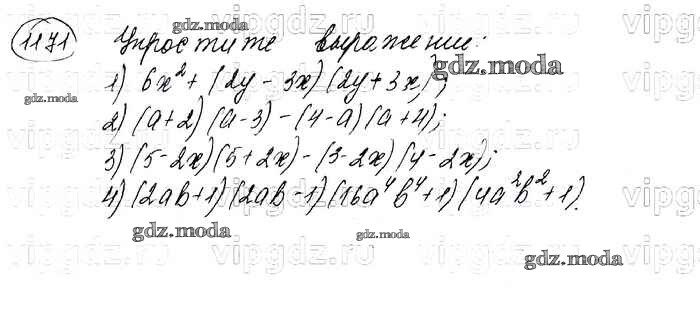 1171 Упростите выражение:
1) 6x² + (2y - 3x)(2y + 3x);
2) (a+2)(a-3) - (4-a)(a+4);
3) (5-2x)(5+2x) - (3-2x)(4-2x);
4) (2ab+1)(2ab-1)(16a⁴b⁴+1)(4a²b²+1).
gdz.moda
gdz.moda
gdz.moda
gdz.moda
gdz.moda
gdz.moda
vipgdz.ru